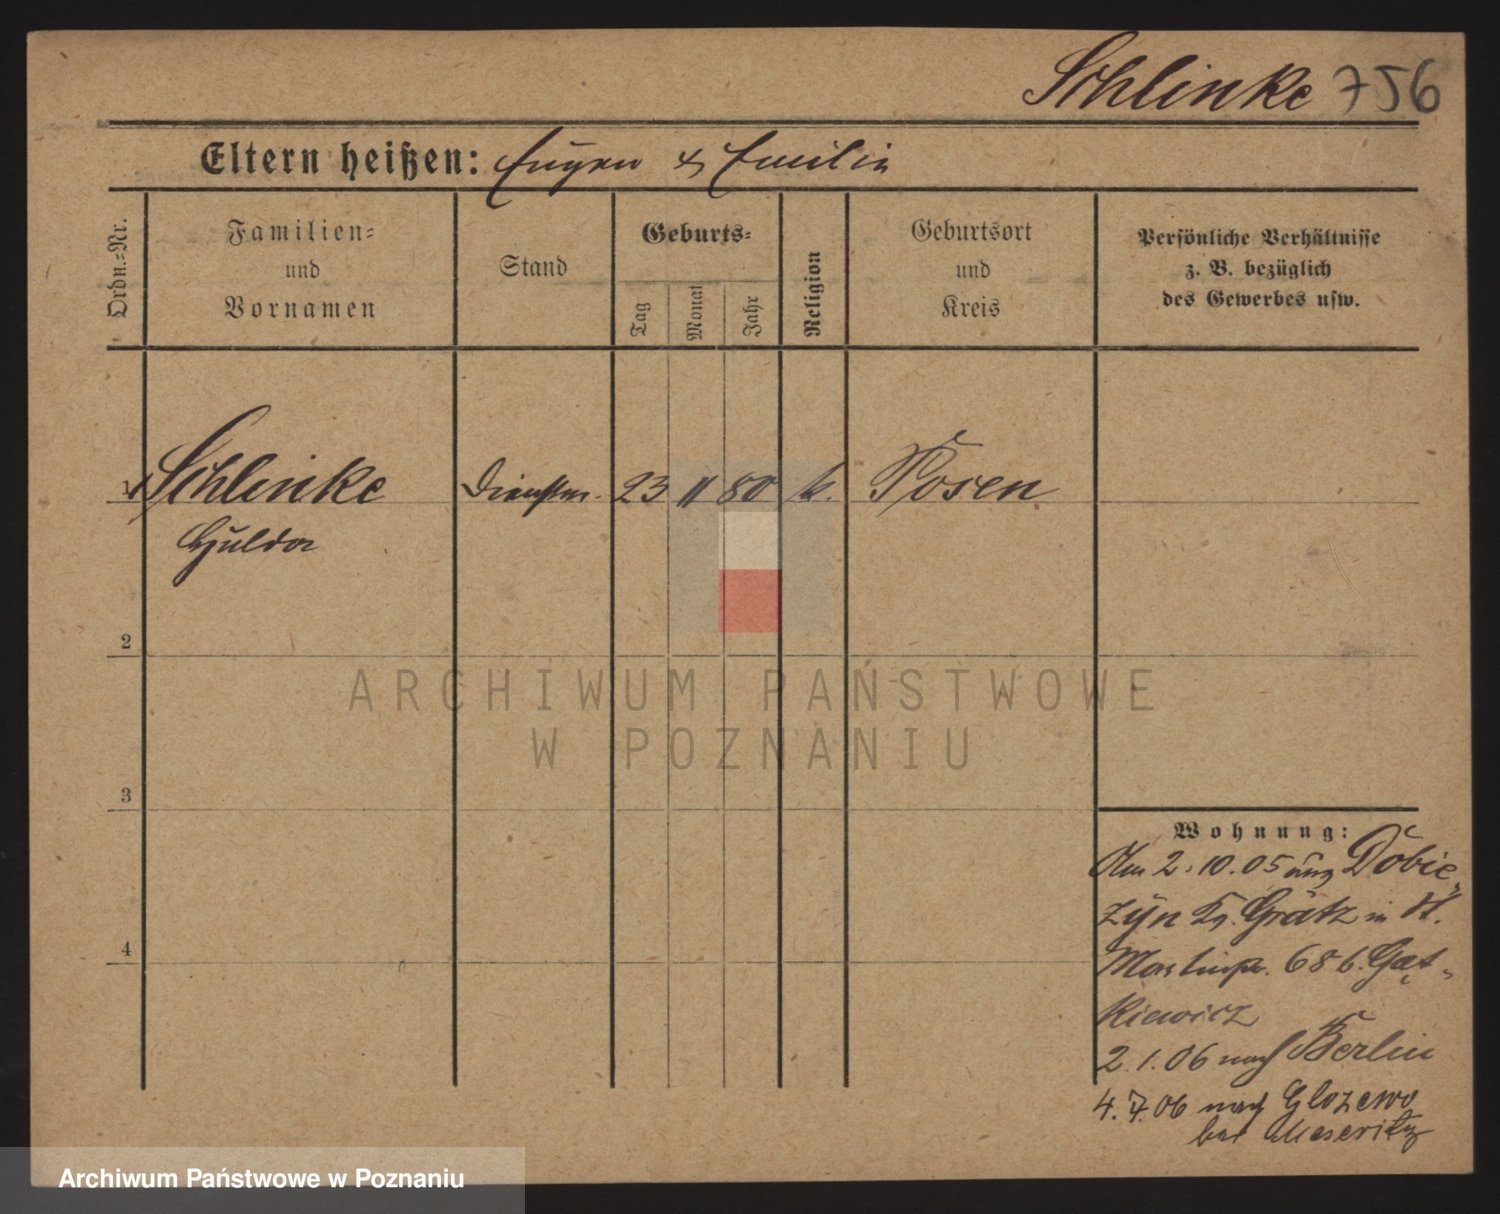 Schlinke 756
Eltern heißen: Eugen & Emilie
Ordn.-Nr.
Familien-
und
Vornamen
Stand
Geburts-
Tag
Monat
Jahr
Religion
Geburtsort
und
Kreis
Persönliche Verhältnisse
z. B. bezüglich
des Gewerbes usw.
1 Schlinke Dienstm. 23 11 80 k. Posen
Hulda
2
3
4
Wohnung:
Am 2.10.05 aus Dobie-
zyn Kr. Grätz in St.
Martinstr. 68 b. Gąt-
kiewicz
2.1.06 nach Berlin
4.7.06 nach Glozewo
bei Meseritz
ARCHIWUM PAŃSTWOWE
W POZNANIU
Archiwum Państwowe w Poznaniu